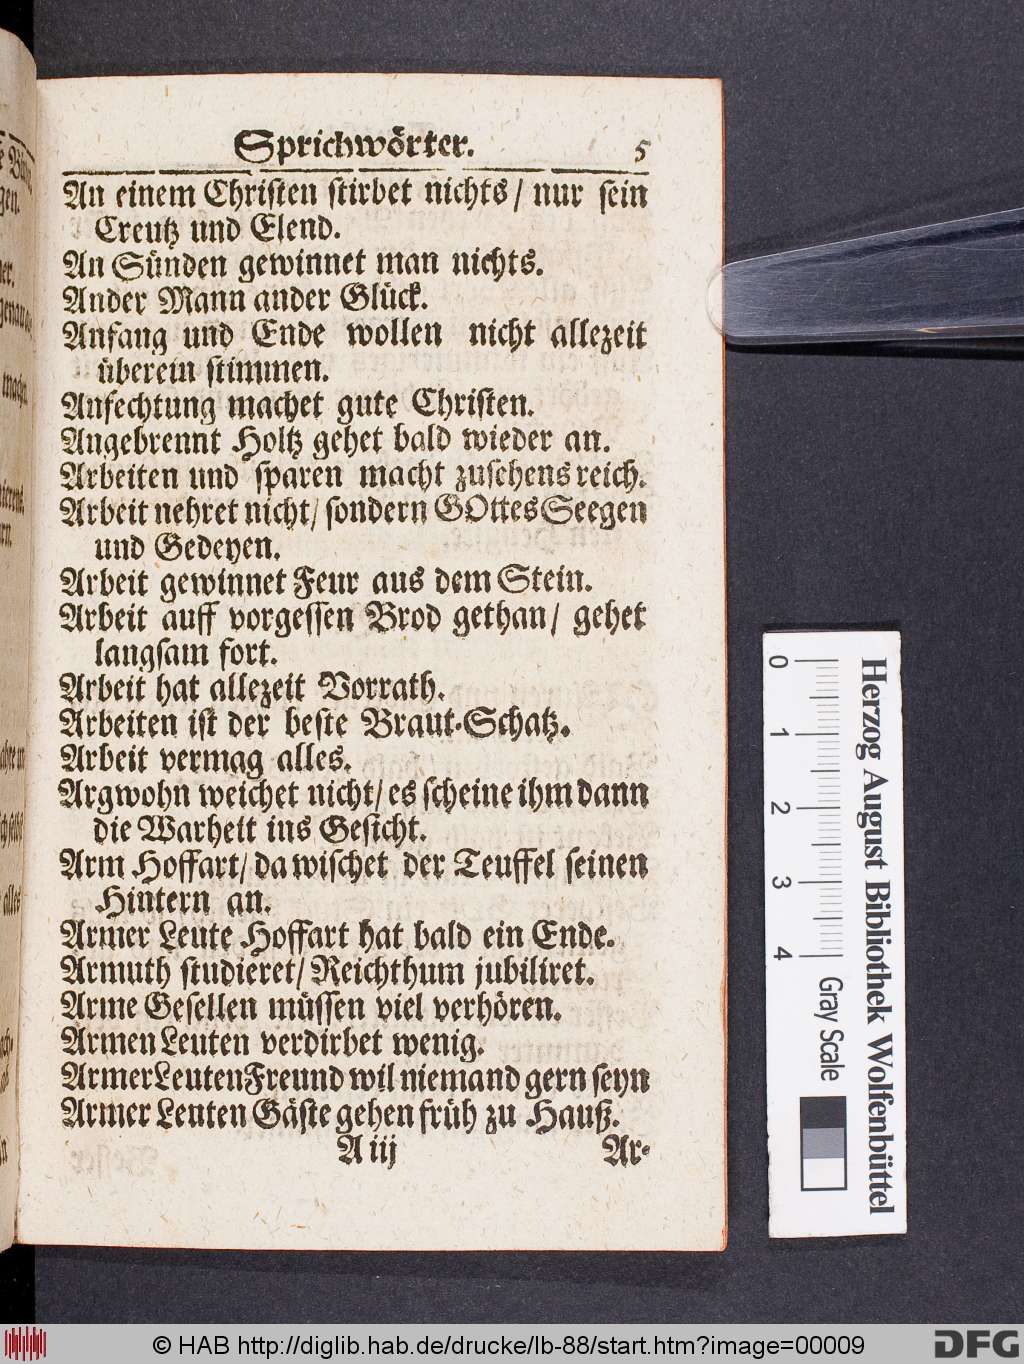 Sprichwörter. 5
An einem Christen stirbet nichts / nur sein
Creutz und Elend.
An Sünden gewinnet man nichts.
Ander Mann ander Glück.
Anfang und Ende wollen nicht allezeit
überein stimmen.
Anfechtung machet gute Christen.
Angebrennt Holtz gehet bald wieder an.
Arbeiten und sparen macht zusehens reich.
Arbeit nehret nicht / sondern GOttes Seegen
und Gedeyen.
Arbeit gewinnet Feur aus dem Stein.
Arbeit auff vorgessen Brod gethan / gehet
langsam fort.
Arbeit hat allezeit Vorrath.
Arbeiten ist der beste Braut-Schatz.
Arbeit vermag alles.
Argwohn weichet nicht / es scheine ihm dann
die Warheit ins Gesicht.
Arm Hoffart / da wischet der Teuffel seinen
Hintern an.
Armer Leute Hoffart hat bald ein Ende.
Armuth studieret / Reichthum jubiliret.
Arme Gesellen müssen viel verhören.
Armen Leuten verdirbet wenig.
Armer Leuten Freund wil niemand gern seyn
Armer Leuten Gäste gehen früh zu Hauß.
A iij Ar-
0 1 2 3 4
Herzog August Bibliothek Wolfenbüttel
Gray Scale
© HAB http://diglib.hab.de/drucke/lb-88/start.htm?image=00009
DFG